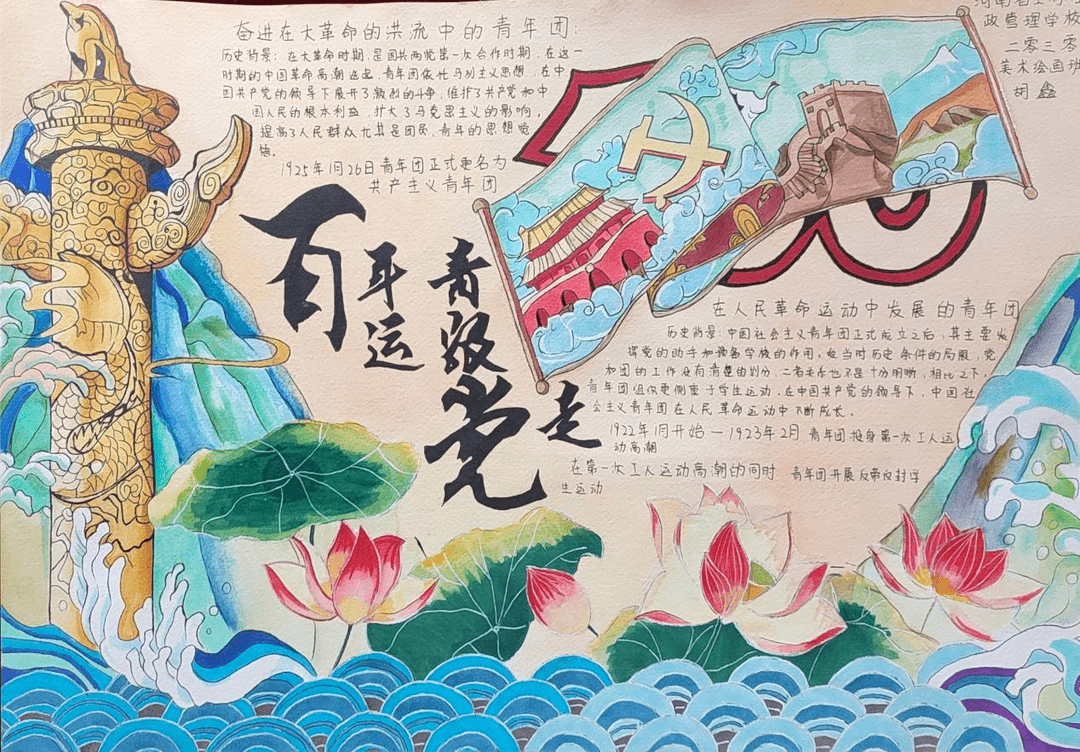 奋进在大革命的洪流中的青年团:
历史背景:在大革命时期,是国共两党第一次合作时期,在这
一时期的中国革命高潮迭起,青年团依托马列主义思想,在中
国共产党的领导下展开了激烈的斗争,维护了共产党和中
国人民的根本利益,扩大了马克思主义的影响,
提高了人民群众尤其是团员、青年的思想觉
悟。
1925年1月26日青年团正式更名为
共产主义青年团
政管理学校
二零三零
美术绘画班
胡鑫
百年运
青级党走
在人民革命运动中发展的青年团
历史背景:中国社会主义青年团正式成立之后,其主要发
挥党的助手和预备学校的作用,受当时历史条件的局限,党
和团的工作没有清楚的划分,二者关系也不是十分明晰,相比之下,
青年团组织更侧重于学生运动,在中国共产党的领导下,中国社
会主义青年团在人民革命运动中不断成长。
1922年1月开始一1923年2月 青年团投身第一次工人运
动高潮
在第一次工人运动高潮的同时 青年团开展反帝反封学
生运动